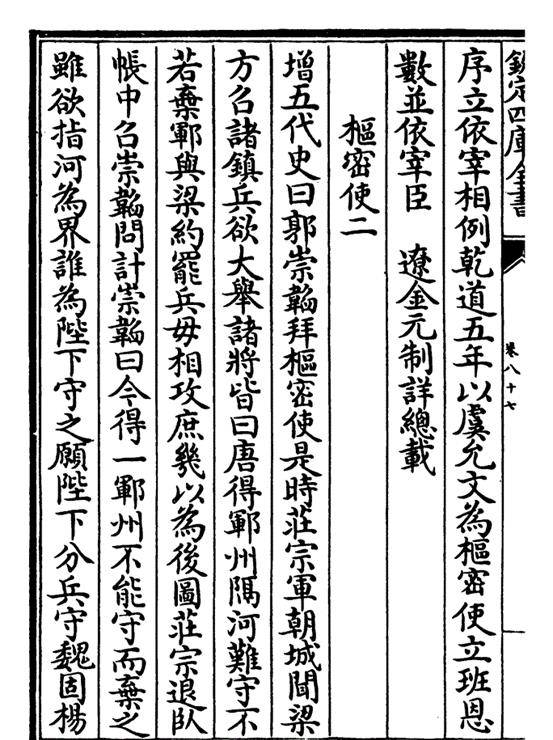 欽定四庫全書
卷八十七
序立依宰相例乾道五年以虞允文為樞密使立班恩
數並依宰臣　遼金元制詳總載
樞密使二
增五代史曰郭崇韜拜樞密使是時莊宗軍朝城聞梁
方召諸鎮兵欲大舉諸將皆曰唐得鄆州隅河難守不
若棄鄆與梁約罷兵毋相攻庶幾以為後圖莊宗退臥
帳中召崇韜問計崇韜曰今得一鄆州不能守而棄之
雖欲指河為界誰為陛下守之願陛下分兵守魏固楊